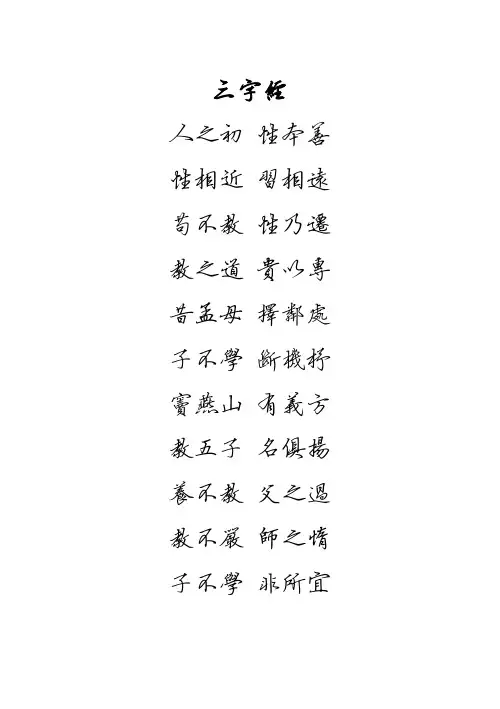 三字經
人之初 性本善
性相近 習相遠
苟不教 性乃遷
教之道 貴以專
昔孟母 擇鄰處
子不學 斷機杼
竇燕山 有義方
教五子 名俱揚
養不教 父之過
教不嚴 師之惰
子不學 非所宜